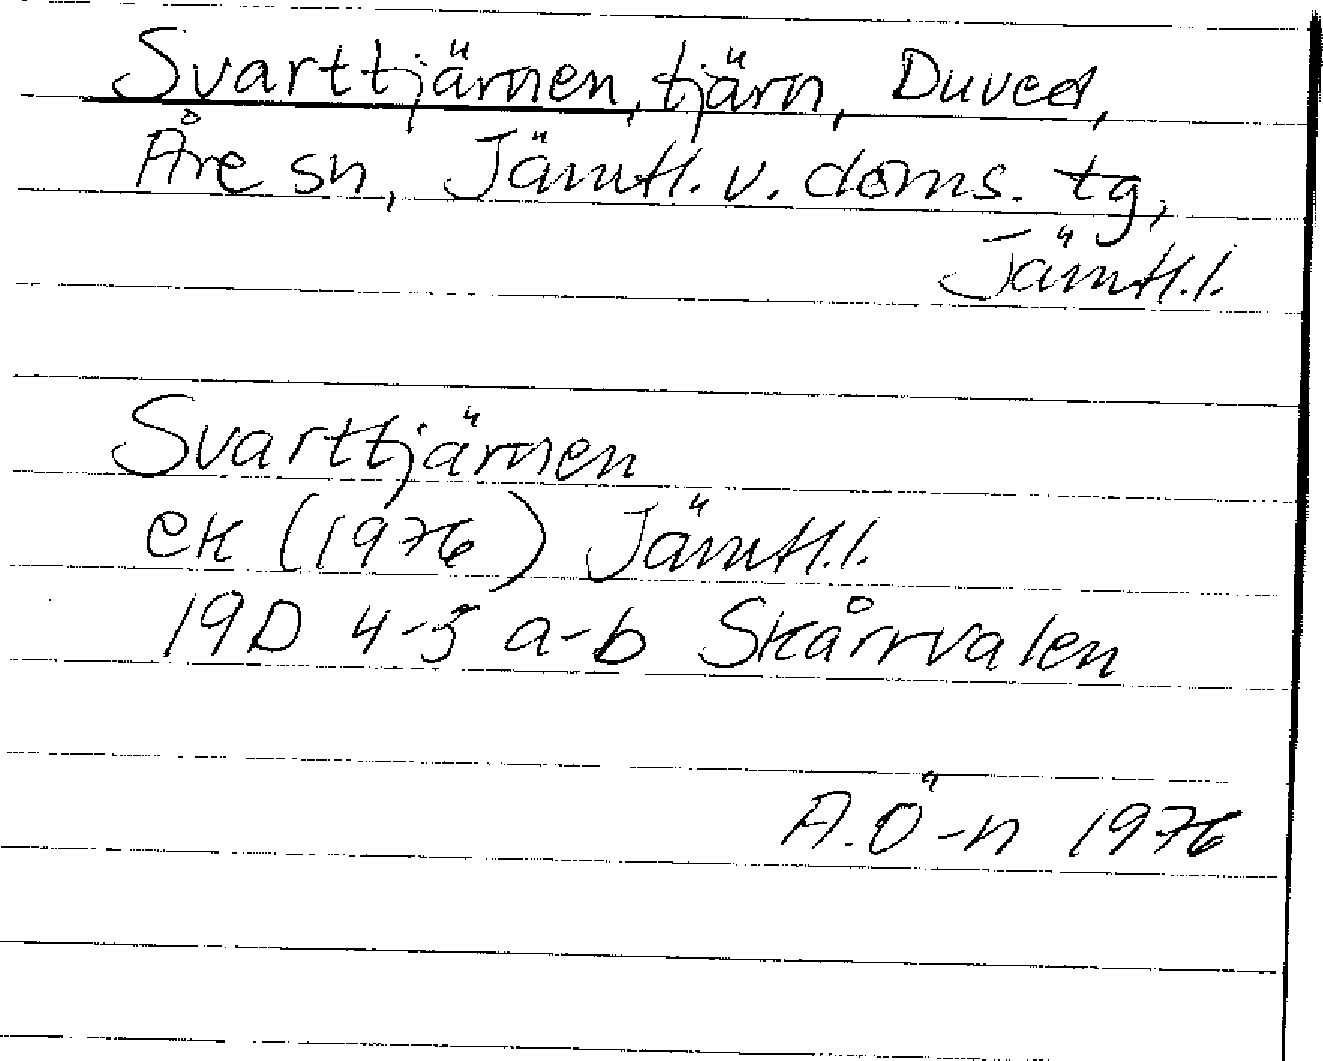 Svarttjärnen, tjärn, Duved,
Åre sn, Jämtl. v. doms. tg,
Jämtl.l.
Svarttjärnen
ek (1976) Jämtl.l.
19D 4-5 a-b Skårrvalen
A.Ö-n 1976